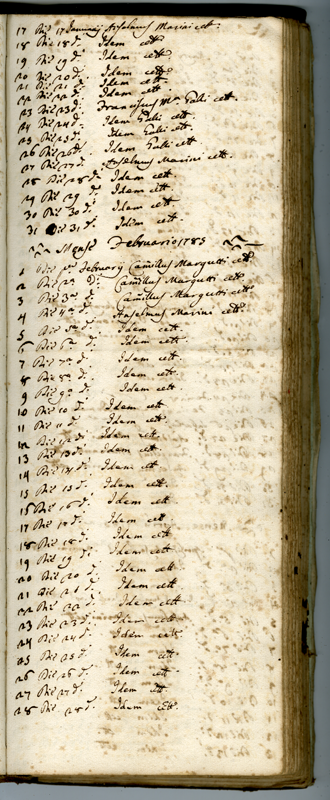 17 Die 17 Januarij Anselmus Marini cett.
18 Die 18 d. Idem cett
19 Die 19 d. Idem cett
20 Die 20 d. Idem cett
21 Die 21 d. Idem cett
22 Die 22 d. Idem cett
23 Die 23 d. Franciscus Ma. Galli cett.
24 Die 24 d. Idem Galli cett.
25 Die 25 d. Idem Galli cett
26 Die 26 d. Idem Galli cett.
27 Die 27 d. Anselmus Marini cett.
28 Die 28 d. Idem cett
29 Die 29 d. Idem cett
30 Die 30 d. Idem cett
31 Die 31 d. Idem cett
Mense Februario 1783
1 Die pa. February Camillus Margutti cett
2 Die 2a d. Camillus Margutti cett
3 Die 3a d. Camillus Margutti cett
4 Die 4a d. Anselmus Marini cett.
5 Die 5a d. Idem cett
6 Die 6a d. Idem cett.
7 Die 7a d. Idem cett
8 Die 8a d. Idem cett
9 Die 9a d. Idem cett
10 Die 10 d. Idem cett
11 Die 11 d. Idem cett
12 Die 12 d. Idem cett
13 Die 13 d. Idem cett
14 Die 14 d. Idem cett
Die 15 d. Idem cett
15 Die 16 d. Idem cett
17 Die 17 d. Idem cett
18 Die 18 d. Idem cett
19 Die 19 d. Idem cett
20 Die 20 d. Idem cett
21 Die 21 d. Idem cett
22 Die 22 d. Idem cett
23 Die 23 d. Idem cett
24 Die 24 d. Idem cett
25 Die 25 d. Idem cett
26 Die 26 d. Idem cett
27 Die 27 d. Idem cett
28 Die 28 d. Idem cett.